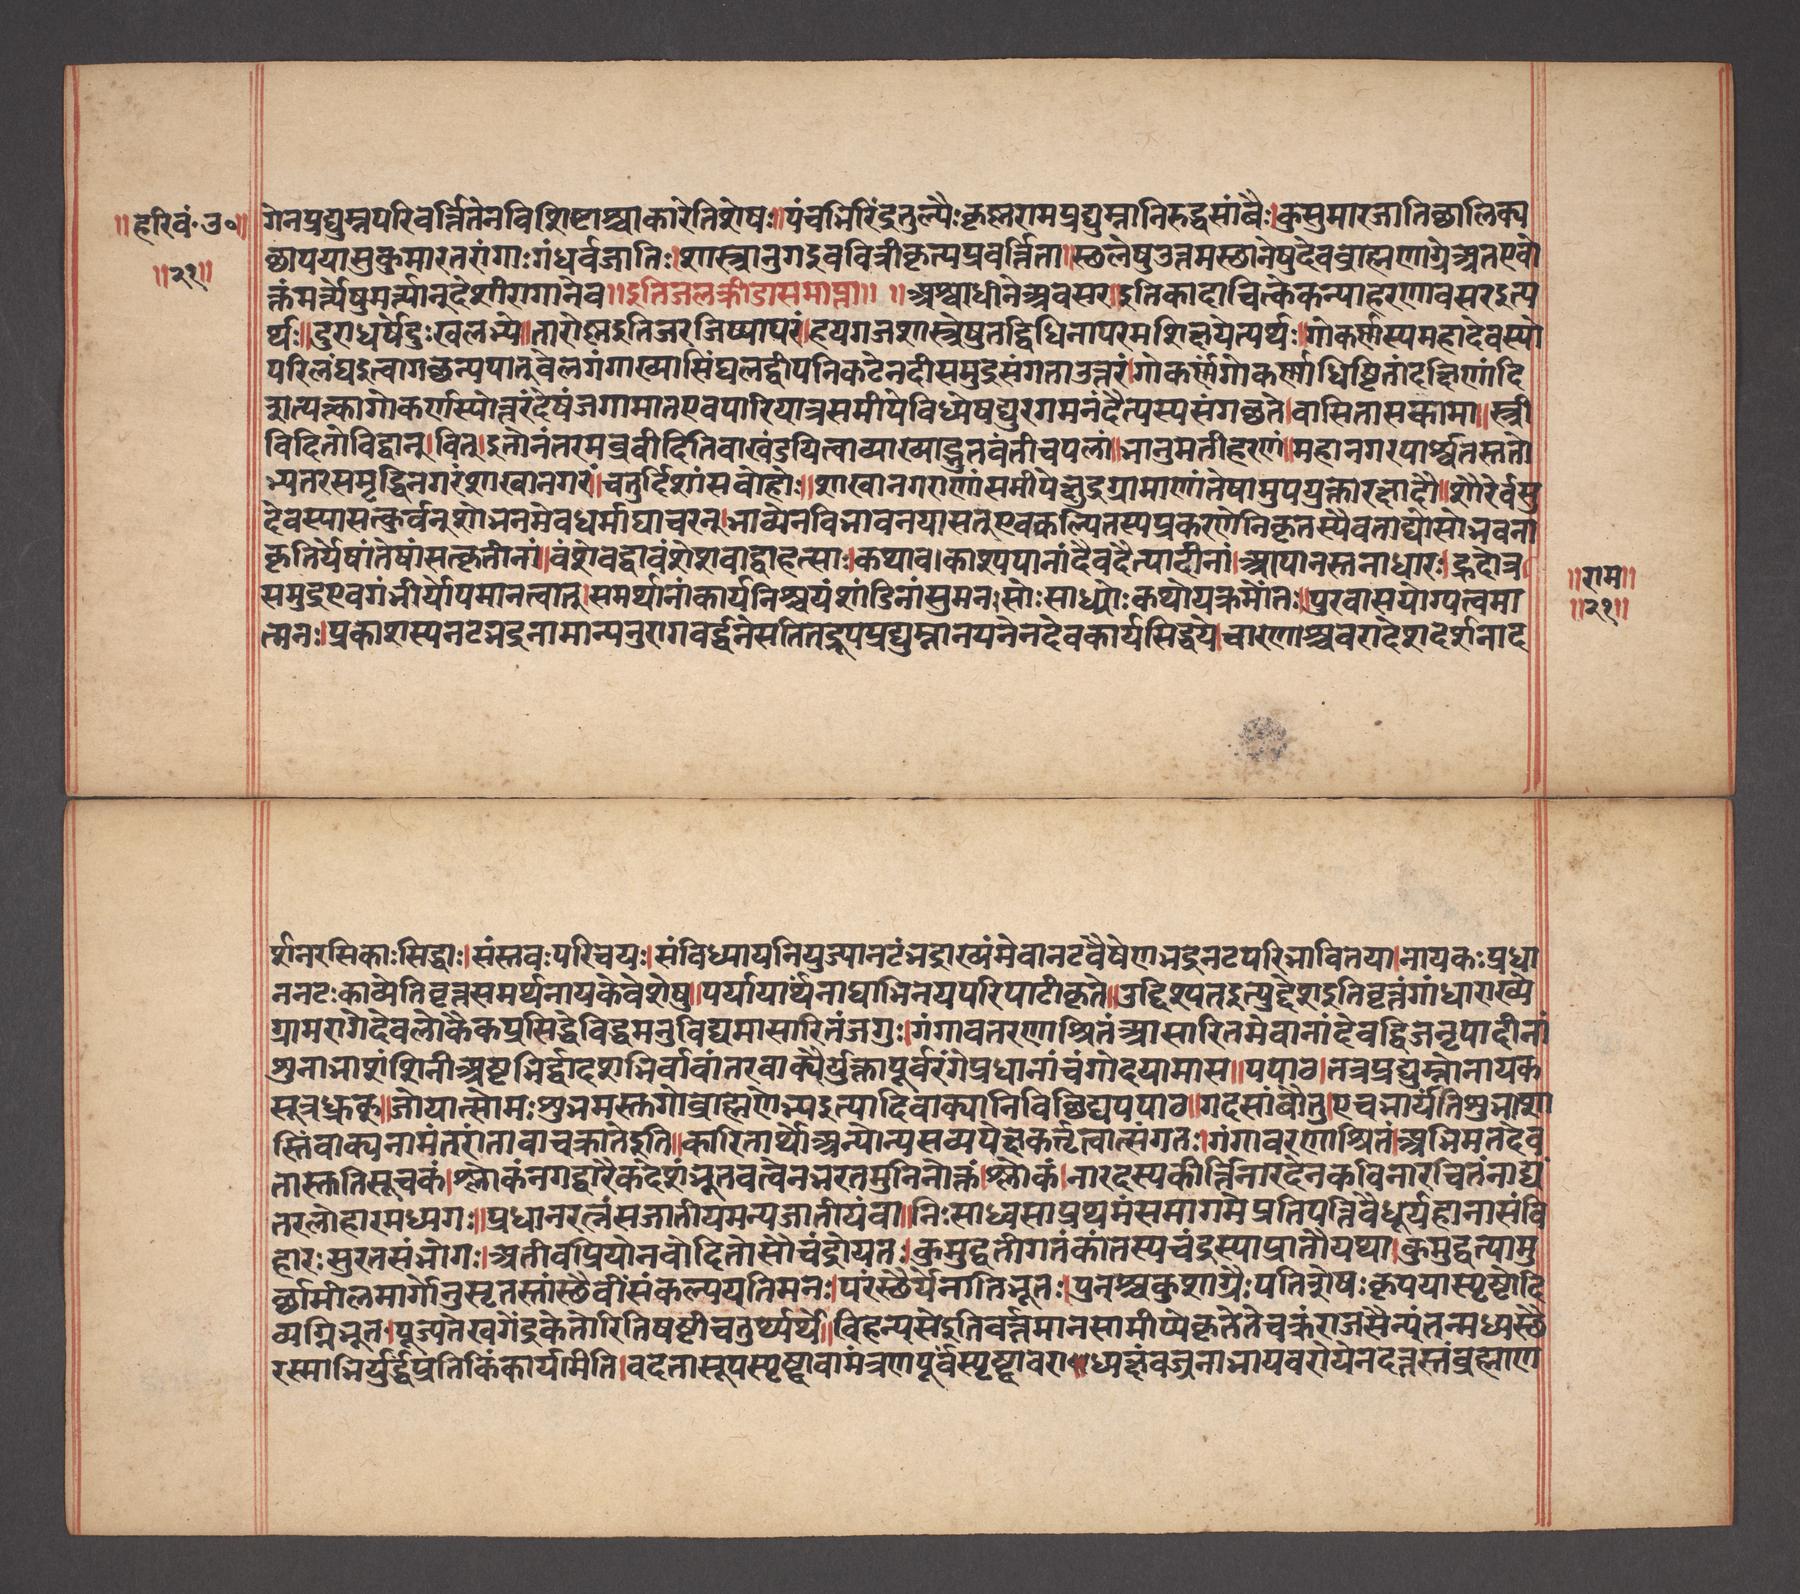 ॥हरिवं॰उ॰॥
॥२१॥
गेनप्रद्युम्नपरिवर्त्तितेनविशिष्टाश्चाकारेतिशेषः॥पंचभिरिंद्रतुल्यैःकृष्णरामप्रद्युम्नानिरुद्धसांबैः।कुसुमारजातिछालिक्य
छापयासुकुमारतरांगाःगंधर्वजातिः।शास्त्रानुगद्रवविन्नीकृत्यप्रवर्त्तिता॥स्छलेषुउत्तमस्छानेषुदेवब्राह्मणाग्रेअतएवो
क्तंमर्त्येषुमर्त्यानुदेशीरागानेव॥इतिजलक्रीडासमाप्ता॥ ॥अश्वाधीनेअवसर।इतिकादाचित्केकन्याहरणावसरइत्य
र्थः॥दुराधर्षेदुःखलभ्ये॥तारोक्षइतिजरजिष्यापरं।हयगजशास्त्रेषुतद्विधिनापरमशिल्पयेत्यर्थः॥गोकर्णस्यमहादेवस्यो
परिलंघइत्वागछन्पपातुवेलगंगाख्यासिंघलद्वीपनिकटेनदीसमुद्रसंगताउत्तरं।गोकर्णंगोकर्णाधिष्टितांदक्षिणांदि
शंत्यक्त्कागोकर्णस्योत्तरंदेषंजगामातएवपारियात्रसमीपेविध्येषद्युरगमनंदैत्यस्यसंगछते।वासितासकामा॥स्त्री
विदितोविद्वान्।वितु।इतोनंतरमब्रवीदितिवाखंडयित्वाव्याख्याद्रुतवंतीचपलां॥भानुमतीहरणं॥महानगरपार्श्वतस्ततो
भ्यतरसमृद्धिनगरंशाखानगरं॥चतुर्दिशांसवोहोः॥शाखानगराणांसमीपेक्षुद्रग्रामाणांतेषामुपयुक्तारक्षादौ॥शौरेर्वसु
देवस्यासत्कुर्वनुशोभनमेवधर्माघाचरन्।भाव्येनविभावनयासतुएवकल्पितस्यप्रकरणेनिकृतस्यैवताद्योसोभवना
कृतिर्येषांतेषांसत्कृतीनां॥वंशेवद्वावंशेशवाद्वाहत्साः।कथाव।काश्यपानांदैवदैत्यादीनां।आपानस्तनाधारः।द्रुहदोत्र
समुद्रएवगंभीर्योपमानत्वान्।समर्थानांकार्यनिश्चयंशांडिनांसुमनःसोःसाध्योःकथोयक्रमोंतः॥पुरवासयोग्यत्वमा
त्मनः।प्रकाशस्यनटभद्रनामान्यनुरागवर्द्धनेसतितद्रूपप्रद्युम्नानयनेनदेवकार्यसिद्धये।चारणाश्चवरादेशदर्शनाद
॥राम॥
॥२१॥
र्शनरसिकाःसिद्धाः।संस्तवःपरिचयः।संविध्यायनियुज्यानटंभद्राख्यंमेवानटवैषेणभद्रेनटपरिभावितया।नायकःप्रधा
ननटःकाव्येतिवृत्तसमर्थनायकेवेशेषु॥पर्यायार्थेनाघाभिनयपरिपाटीकृते॥उद्दिश्यतइत्युद्देशइतिवृत्तंगांधाराख्ये
ग्रामरागेदेवलोकैकप्रसिद्धेविद्धमनुविद्यमासारितंजगुः।गंगावतरणाश्रितंआसारितमेवानांदेवद्विजनृपादीनां
शुनाभाशंशिनीअष्टभिर्द्वादशभिर्वावांतरवाक्यैर्युक्तापूर्वरंगेप्रधानांचंगोदयामास॥पपाठ।तत्रप्रद्युम्नोनायक
सूत्रध्रकू॥जोयात्सोमःशुभमस्तगोब्राह्मणेभ्यइत्यादिवाक्यानिविछिद्यपपाठ॥गदसांबौतु।एचभार्यतिशुभाशा
स्तिंवाक्यनामंतरांतावाचक्रातेइति॥कारितार्थोअन्योन्यसव्यपेक्षकर्तृत्वात्संगतः।गंगावरणाश्रितं।अभिमतदेव
तास्ततिसूचकं।श्लोकंनगद्वारैकदेशंभूतवत्वेनभरतमुनिनोक्तं।श्लोकं।नारदस्यकीर्त्तिनारदेनकविनारचितंनाद्यं
तरलोहारमध्यगः॥प्रधानरत्नंसजातीयमन्यजातीयंवा॥निःसाध्वसाप्रथमंसमागमेप्रतिपत्निवैधूर्यहानासंवि
हारःसुरतसंभोगः।अतीवप्रियोनवोदितोसौचंद्रोयतः।कुमुद्वतीगतंकांतस्यचंद्रस्याप्रातौयथा।कुमुद्वत्यामु
र्छामीलमार्गोनुसृतस्तांस्छैवींसंकल्पयतिमनः।परंस्छैर्यनातिभूतः।पुनश्चकुशाग्रैःपतिशेषःकृपयास्पृष्टोदि
व्यग्निभूत।पूज्यतेखगेंद्रकेतोरितिषष्टीचतुर्थ्यर्थे॥विहन्यसेइतिवर्त्तमानसामीप्येकृतेतेचक्रंराजसैन्यंतन्मध्यस्छै
रस्माभिर्युर्द्धेप्रतिकिंकार्यमिति।वदतासूपस्पृष्ट्वावामंत्रणपूर्वस्पृष्ट्वावराध्यक्षंवज्रनाभायवरोयेनदत्तस्तंब्रह्माण